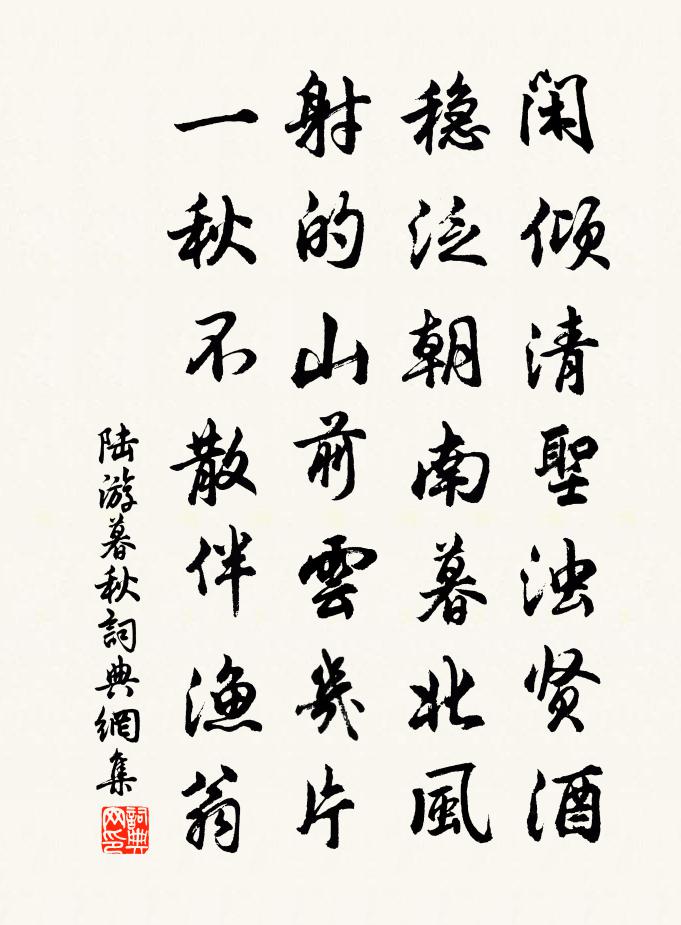 闲倾清聖浊贤酒
稳泛朝南暮北風
射的山前雲幾片
一秋不散伴漁翁
陆游暮秋詞典網集
詞典网印